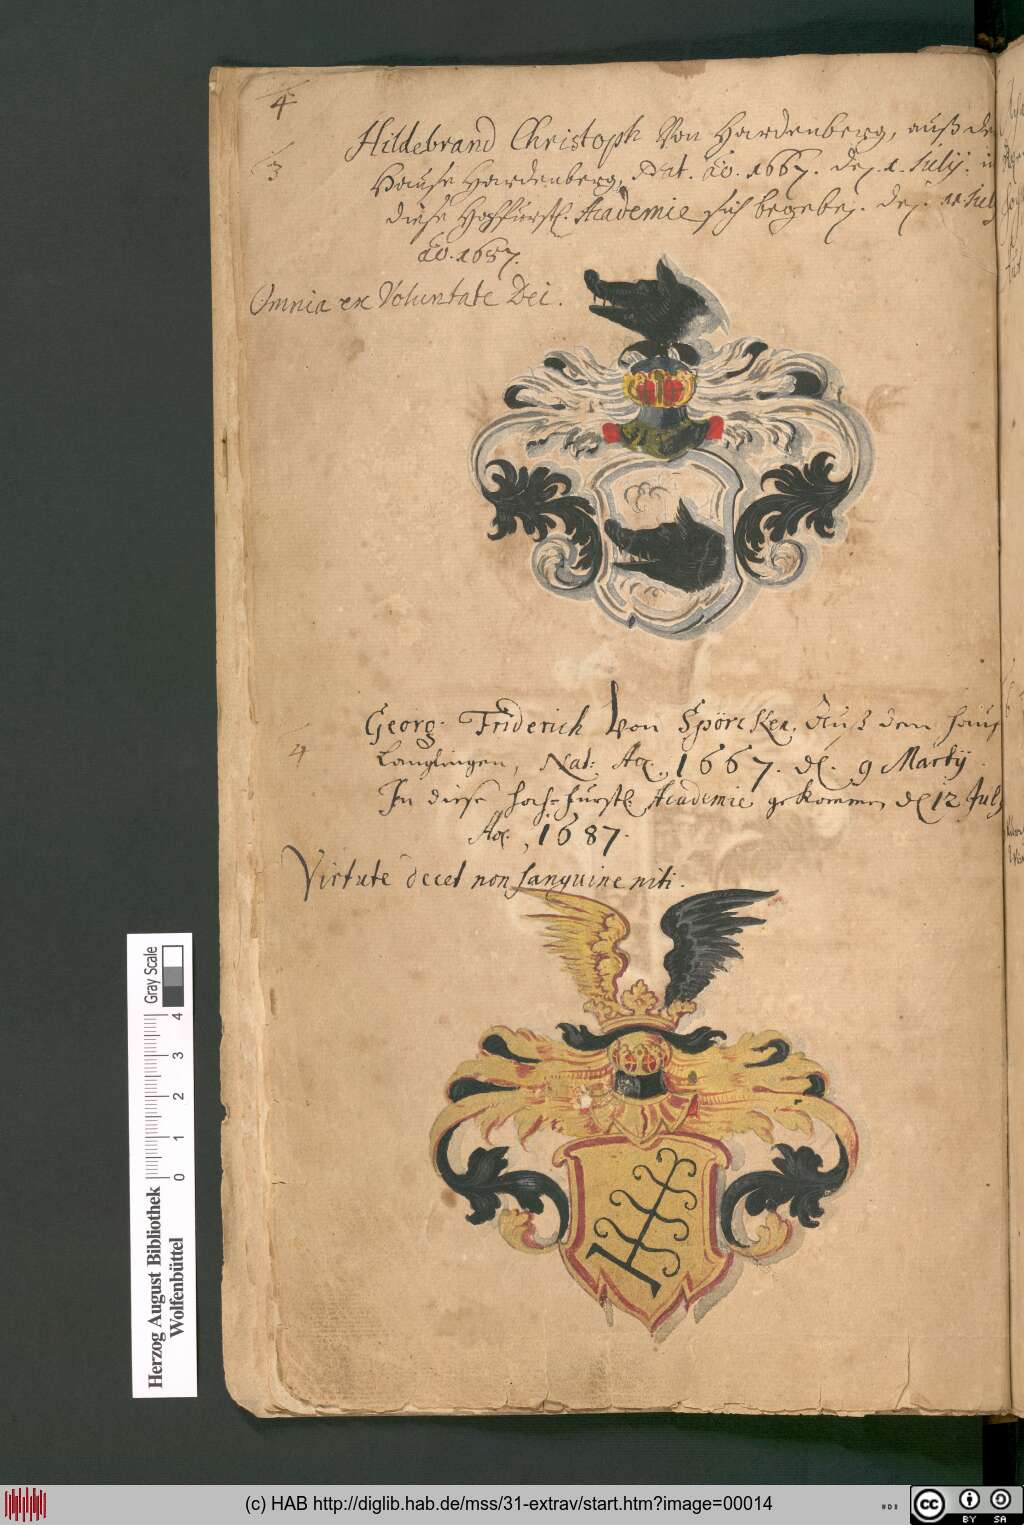 4
Hildebrand Christoph Von Hardenberg, auß dem
3
Hause Hardenberg, Nat. Ao. 1667. den. 1. Julij. in
diese Hochfürstl. Academie sich begeben. den. 11 July
Ao. 1687.
Omnia ex Voluntate Dei.
Georg. Friderich Von Spörcken, Auß dem Hauß
4
Langlingen, Nat: Ao, 1667. d. 9 Martij.
In diese Hoch-fürstl. Academie gekommen d 12 July
Ao, 1687.
Virtute decet non sanguine niti.
Herzog August Bibliothek
Wolfenbüttel
0 1 2 3 4
Gray Scale
(c) HAB http://diglib.hab.de/mss/31-extrav/start.htm?image=00014
cc BY SA